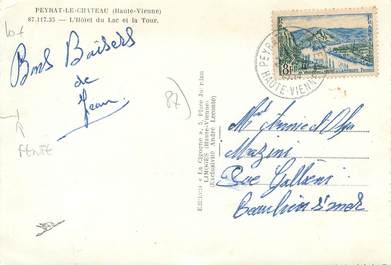 PEYRAT-LE-CHATEAU (Haute-Vienne)
87.117.35 - L'Hôtel du Lac et la Tour.
Bons Baisers
de
Jean
87
FENTE
Editions « La Cigogne », 5, Place Jourdan
LIMOGES (Haute-Vienne)
(Exclusivité André Leconte)
POSTES
8F
PEYRAT
HAUTE-VIENNE
Mazini
Rue Gallieni
Beaulieu s/mer